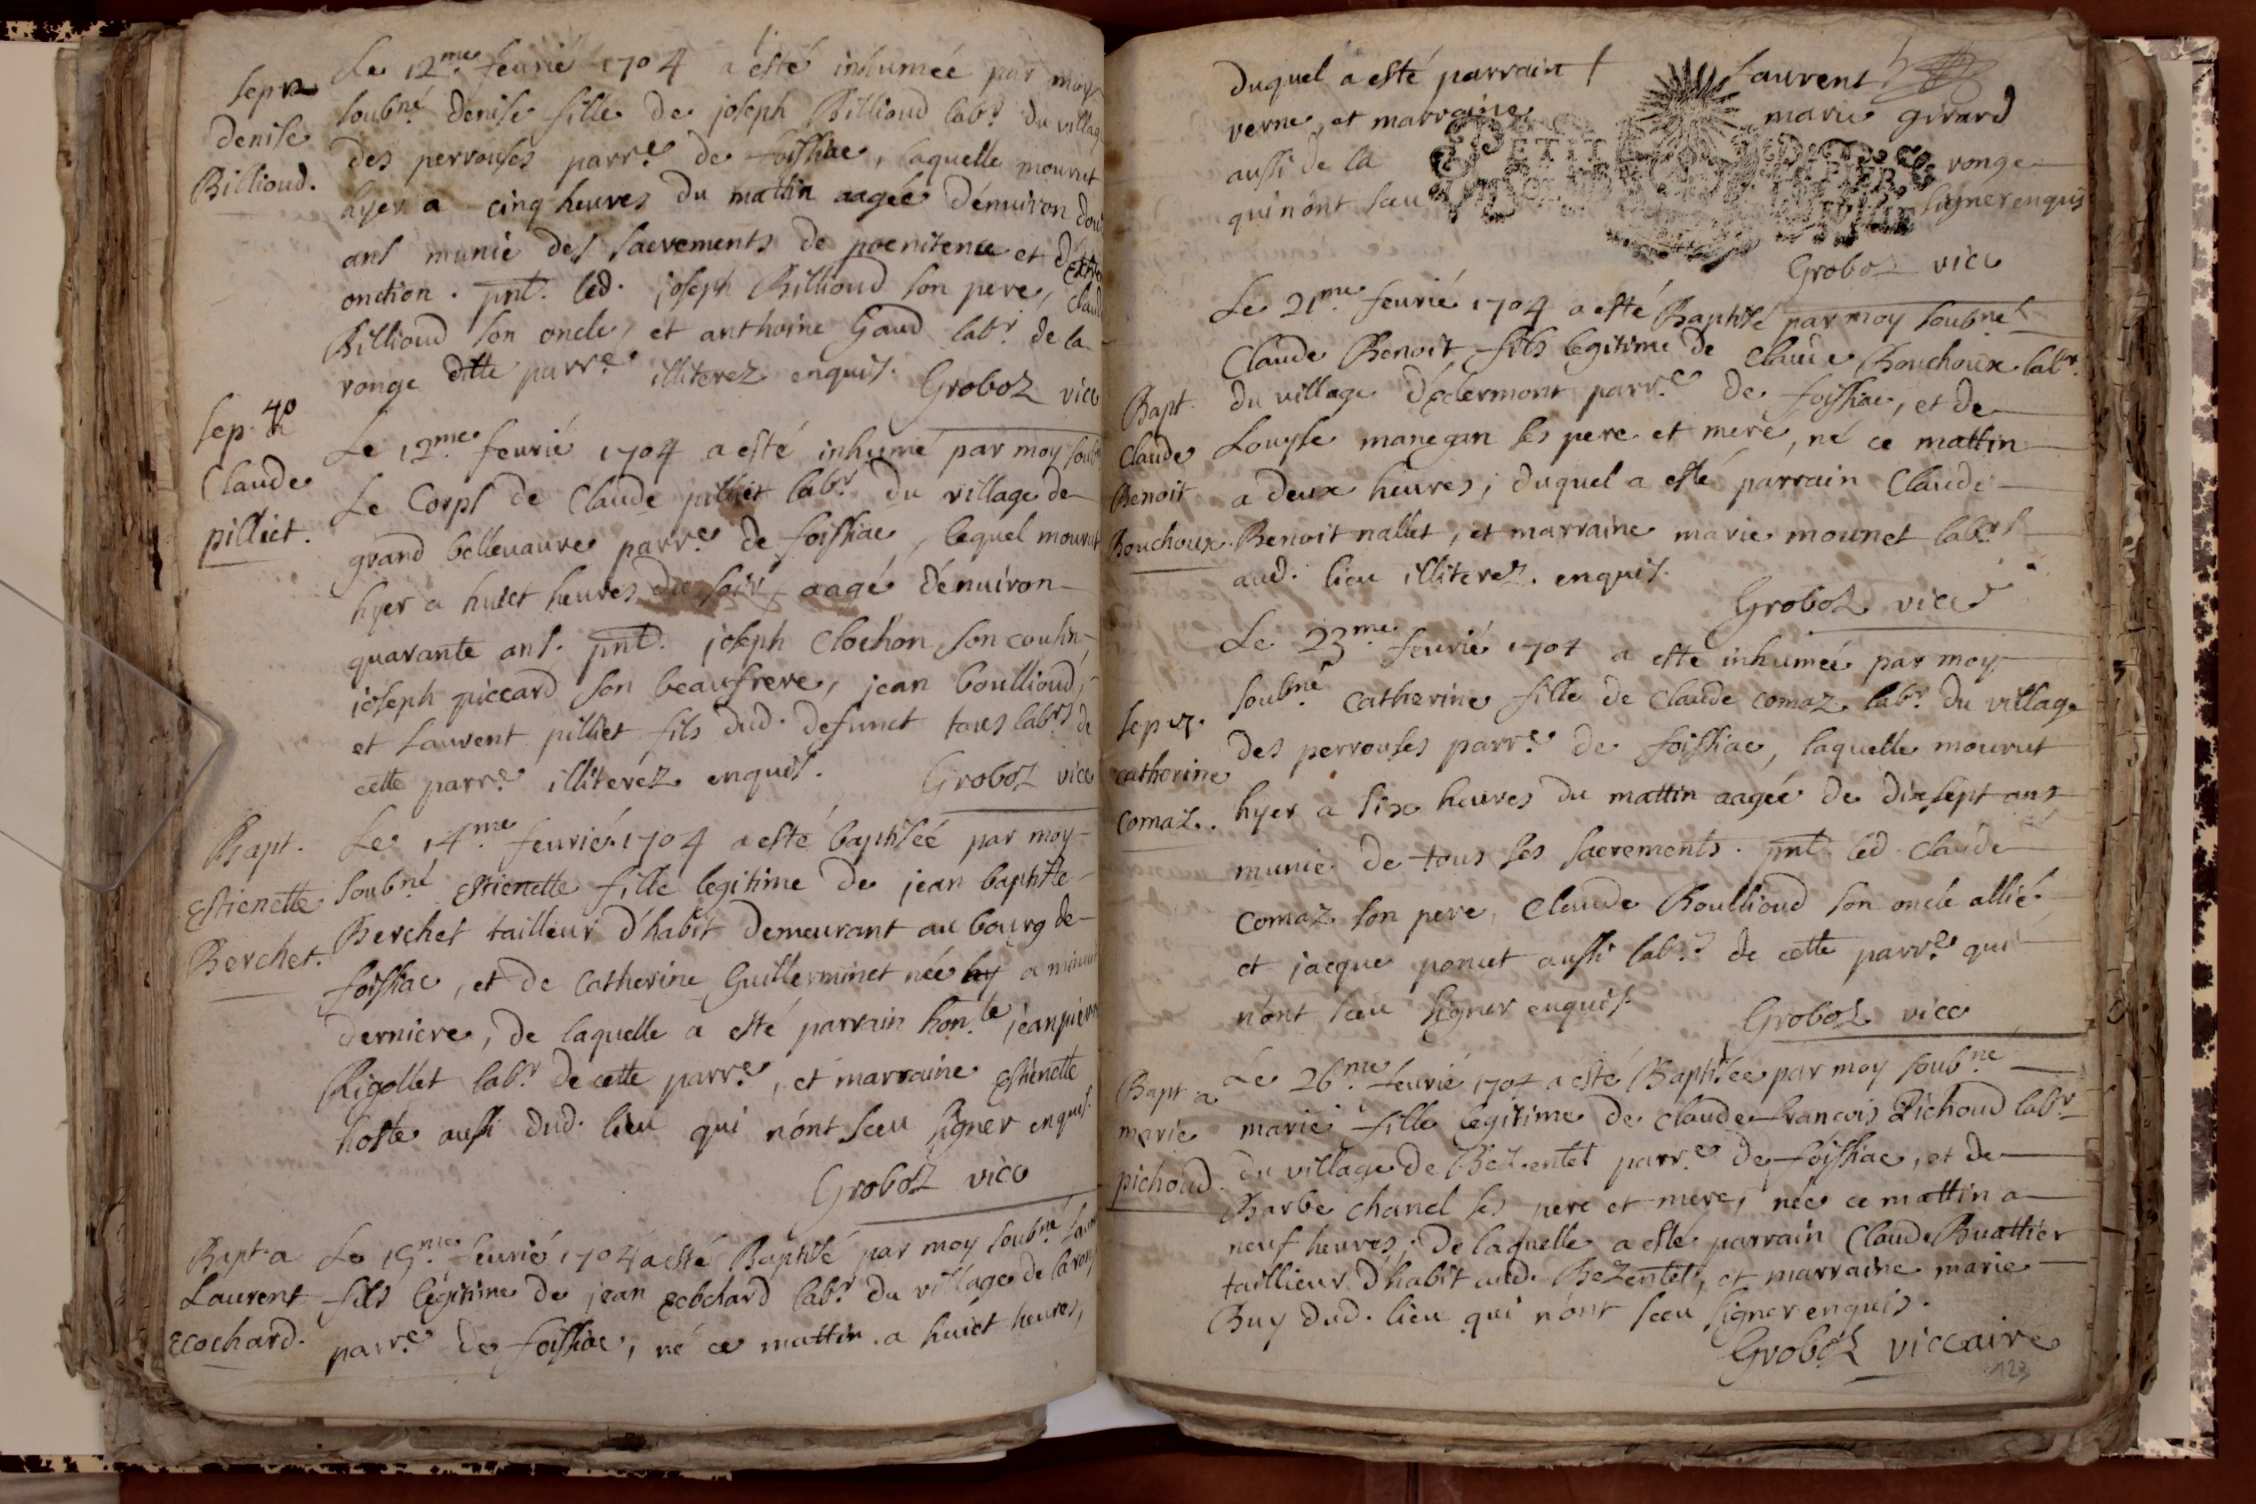 Le 12.me feurié 1704 a esté inhumée par moy
sep
denise
Billioud.
soubné denise fille de joseph Billioud labr. du village
des perrouses parr.e de foissiac, laquelle mourut
hyer a cinq heures du mattin aagée dénuiron
ans munie des sacrements de poenitence et
onction. pnt. led. joseph Billioud son pere,
Billioud son oncle, et anthoine Gaud labr. de la
ronge ditte parr.e illiterez enquis. Groboz vicc
sep.
Claude
pilliet.
Le 12.me feurié 1704 a esté inhumé par moy soub
Le Corps de Claude pilliet labr du village de
grand belleuaure parr.e de foissiac, lequel mourut
hyer a huict heures du soir, aagé dénuiron
quarante ans. pnt. joseph Clochon son cousin,
joseph piccard son beaufrere, jean boullioud,
et Laurent pilliet fils dud. defunct tous labrs de
cette parr.e illiteréz enquis. Groboz vicc
Bapt.
Estienette
Berchet.
Le 14.me feurié 1704 a esté baptiséé par moy
soubné Estienette fille legitime de jean baptiste
Berchet tailleur d'habit demeurant au bourg de
foissiac, et de Catherine Guillerminet née a minuit
derniere, de laquelle a esté parrain hon.le jean
Rigollet labr de cette parr.e, et marraine Estienette
hoste aussi dud. lieu qui n'ont sceu signer enquis.
Groboz vicc
Bapt. a
Laurent
Ecochard.
Le 15.me feurié 1704 a esté Baptisé par moy soubné
fils légitime de jean Ecochard labr. du village de la
parr.e de foissiac, né ce mattin a huict heures,
duquel a esté parrain Laurent
verne, et marraine marie girard
PETIT PAPIER
aussi de la ronge
qui n'ont sceu signer enquis
Groboz vicc
Bapt.
Claude
Benoit
Bouchoux.
Le 21.me feurié 1704 a esté Baptisé par moy soubné
Claude Benoit fils legitime de Claude Bouchoux labr.
du village déxdermont parr.e de foissiac, et de
Louyse manegan ses pere et meré, né ce mattin
a deux heures; duquel a esté parrain Claude
Benoit nallet, et marraine marie mounet labrs
aud. lieu illiterez. enquis.
Groboz vicc
sep
catherine
comaz.
Le 23.me feurié 1704 a esté inhumée par moy
soubné catherine fille de Claude comaz labr. du village
des perrouses parr.e de foissiac, laquelle mourut
hyer a six heures du mattin aagée de dixsept ans
munie de tous ses sacrements. pnt. led. Claude
comaz son pere, Claude Boullioud son oncle allié,
et jacque ponut aussi labrs de cette parr.e qui
n'ont sceu signer enquis
Groboz vicc
Bapt. a
marie
pichoud.
Le 26.me feurié 1704 a esté Baptisée par moy soubné
marie fille legitime de claude francois Pichoud labr
du village de Bezentet parr.e de foissiac, et de
Barbe chanel ses pere et mere, née ce mattin a
neuf heures; de laquelle a esté parrain Claude Buattier
taillieur d'habit aud. Bezentet, et marraine marie
Buy dud. lieu qui n'ont sceu signer enquis.
Groboz viccaire
123